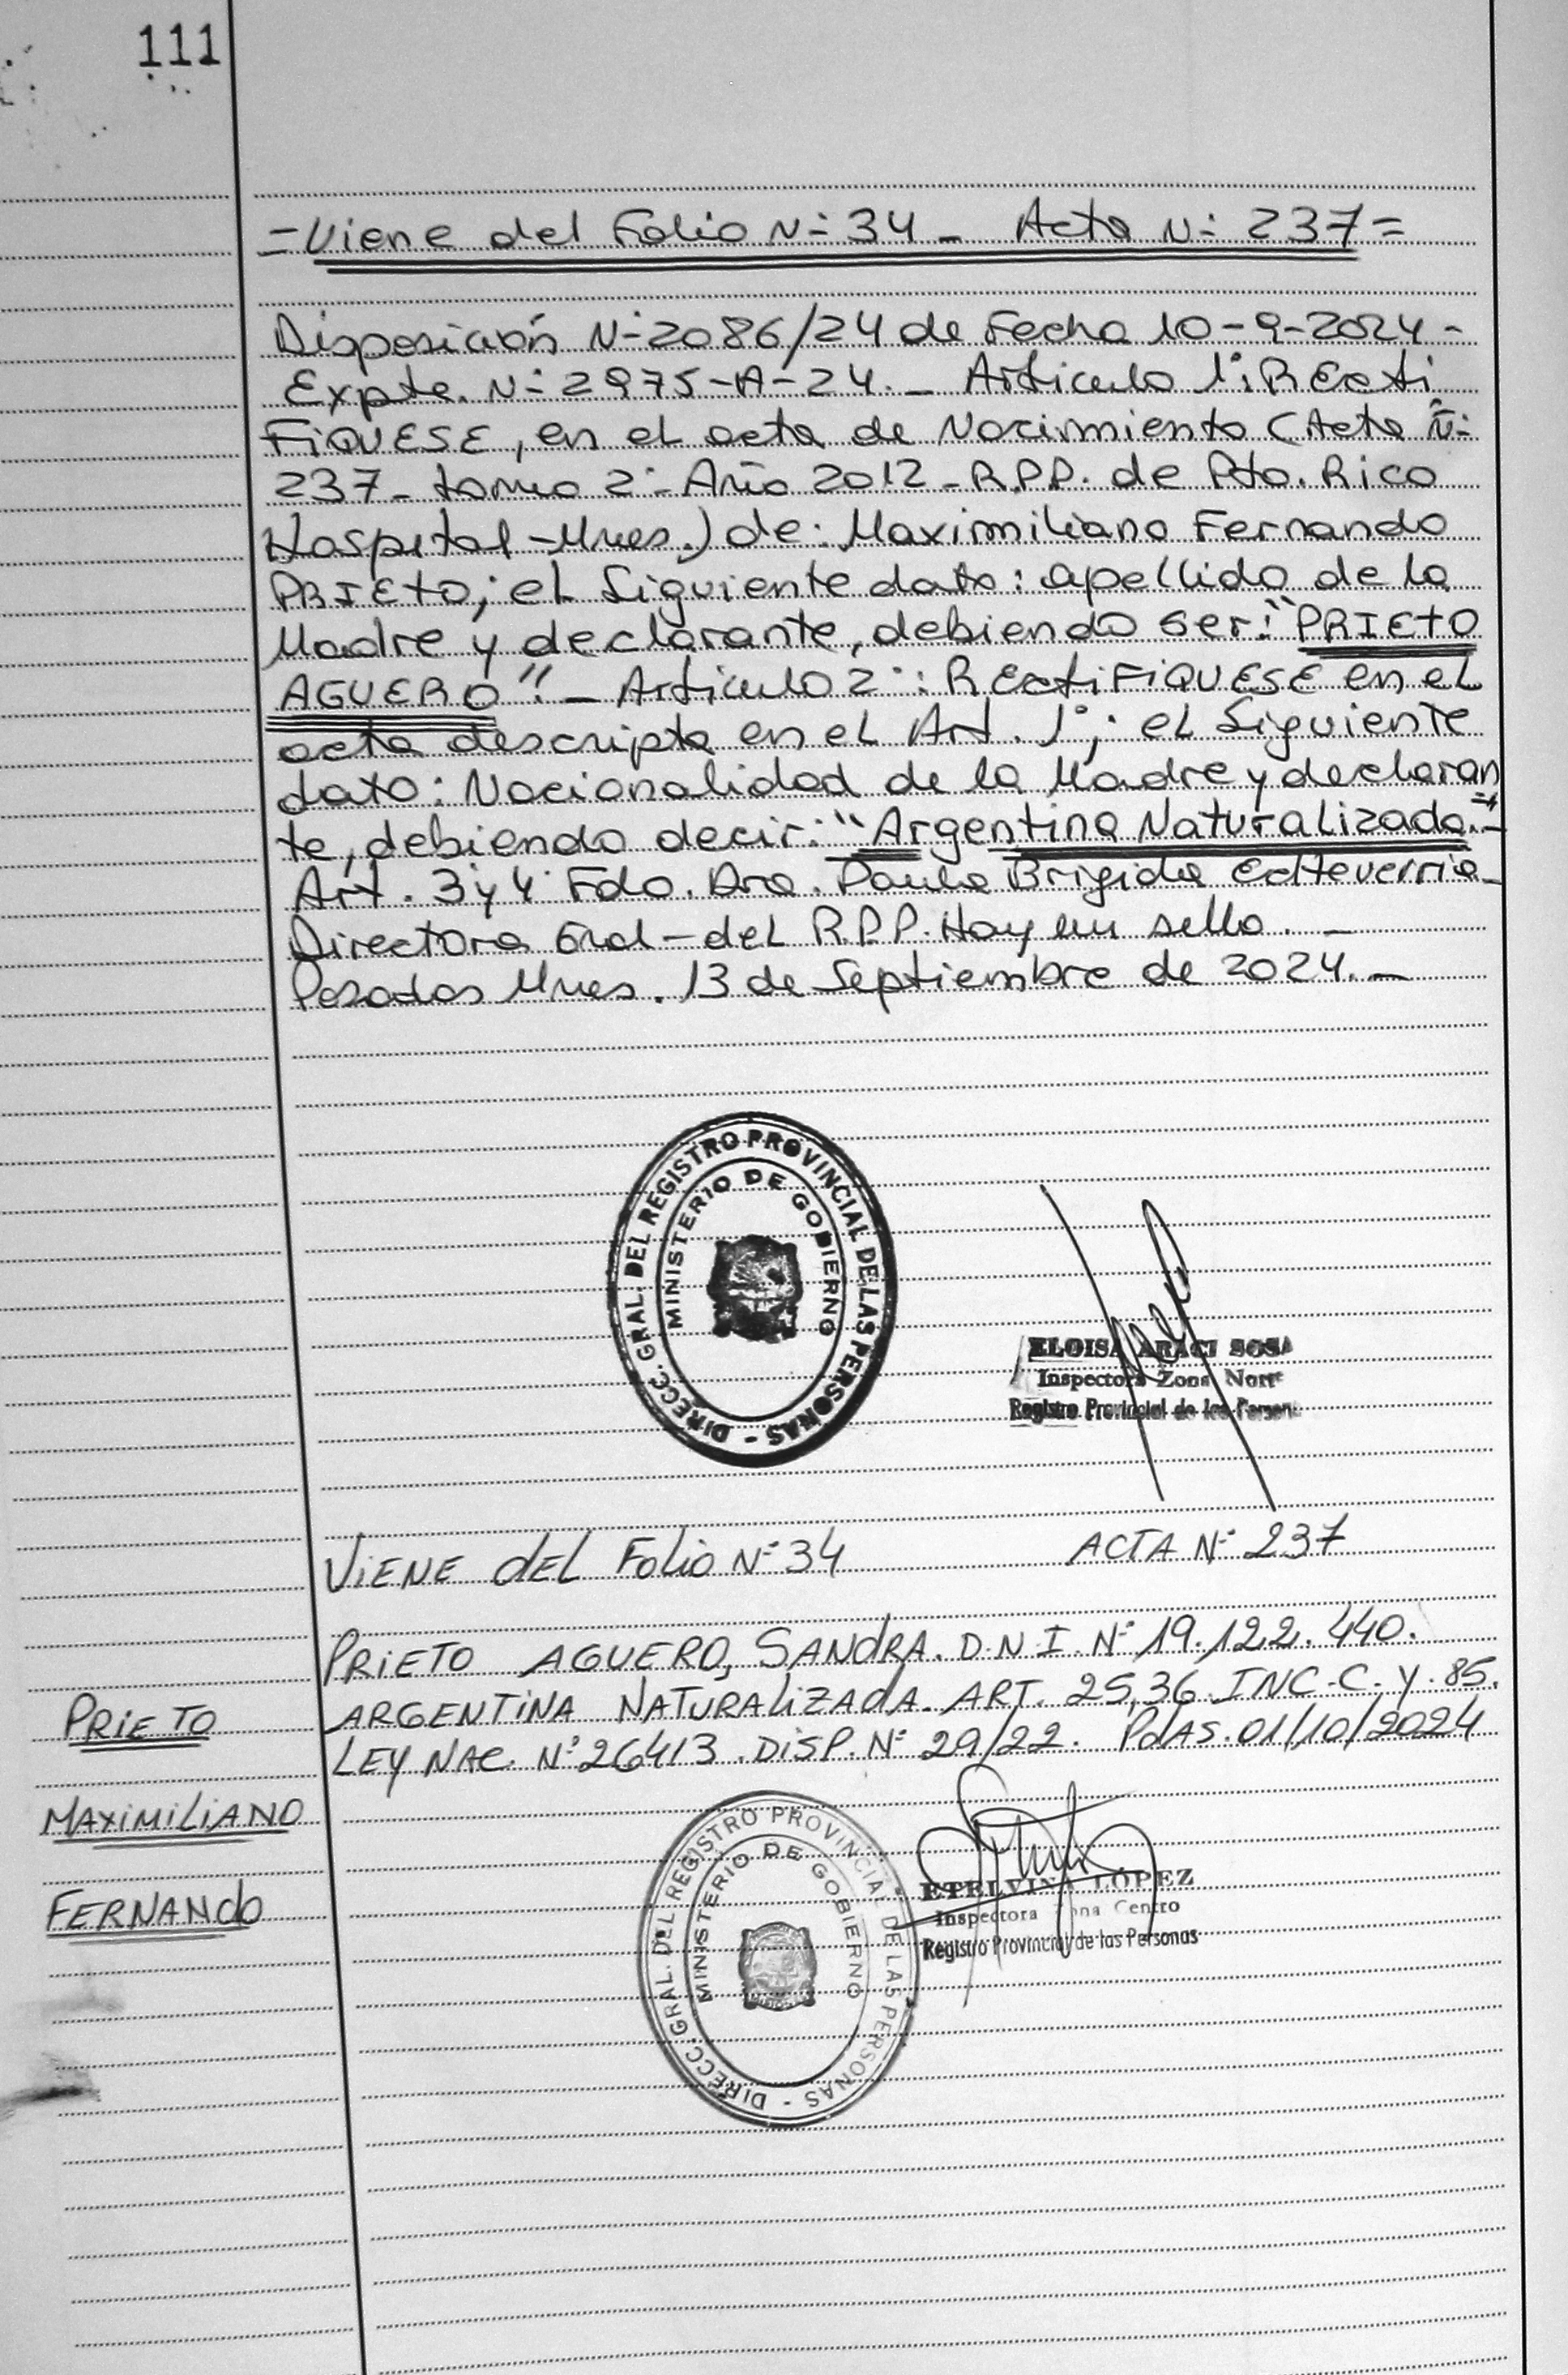 111
=Viene del Folio N° 34 - Acta N° 237=
Disposición N° 2086/24 de Fecha 10-9-2024-
Expte. N° 2975-A-24. - Articulo 1°: REcti
FiQUESE, en el acta de Nacimiento (Acta N°
237- tomo 2° - Año 2012 - R.P.P. de Pto. Rico
Hospital - Mnes.) de: Maximiliano Fernando
PRIETO; el Siguiente dato: apellido de la
Madre y declarante, debiendo ser: "PRIETO
AGUERO". - Articulo 2°: REctiFiQUESE en el
acta descripta en el Art. 1°; el Siguiente
dato: Nacionalidad de la Madre y declaran
te, debiendo decir: "Argentina Naturalizada."-
Art. 3 y 4° Fdo. Dra. Paula Brigida Echeverria-
Directora Gral - del R.P.P. Hay un sello. -
Posadas Mnes. 13 de Septiembre de 2024. -
DIRECC. GRAL. DEL REGISTRO PROVINCIAL DE LAS PERSONAS -
MINISTERIO DE GOBIERNO
ELOISA ARACI SOSA
Inspectora Zona Norte
Registro Provincial de las Personas
ViENE dEL Folio N° 34 ACTA N° 237
PRiETO AGUERO, SANdRA. D.N.I. N° 19.122.440.
ARGENTiNA NATURAliZAdA. ART. 25,36 INC.C. Y 85.
LEY NAC. N° 26413. DiSP. N° 29/22. PdAS. 01/10/2024
PRiETO
MAXiMiLiANO
FERNANdO
DIRECC. GRAL. DEL REGISTRO PROVINCIAL DE LAS PERSONAS -
MINISTERIO DE GOBIERNO
ETELVINA LOPEZ
Inspectora Zona Centro
Registro Provincial de las Personas